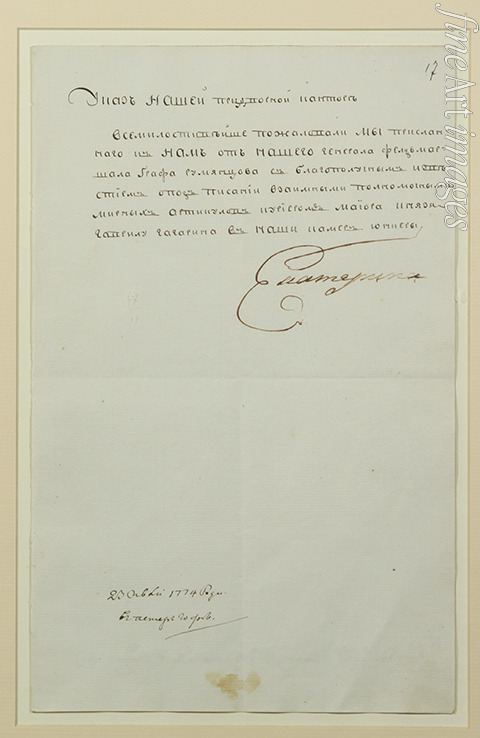 17
Указъ НАШЕЙ придворной конторѣ
Всемилостивѣйше пожаловали МЫ прислан-
наго къ НАМЪ отъ НАШЕГО генерала фельдмар-
шала Графа Румянцова съ благополучнымъ извѣ-
стіемъ о подписаніи взаимными полномочными
мирныхъ артикуловъ маіора князя
Гаврилу Гагарина въ НАШИ камеръ юнкеры
Екатерина
23 1774 года
fine Art images